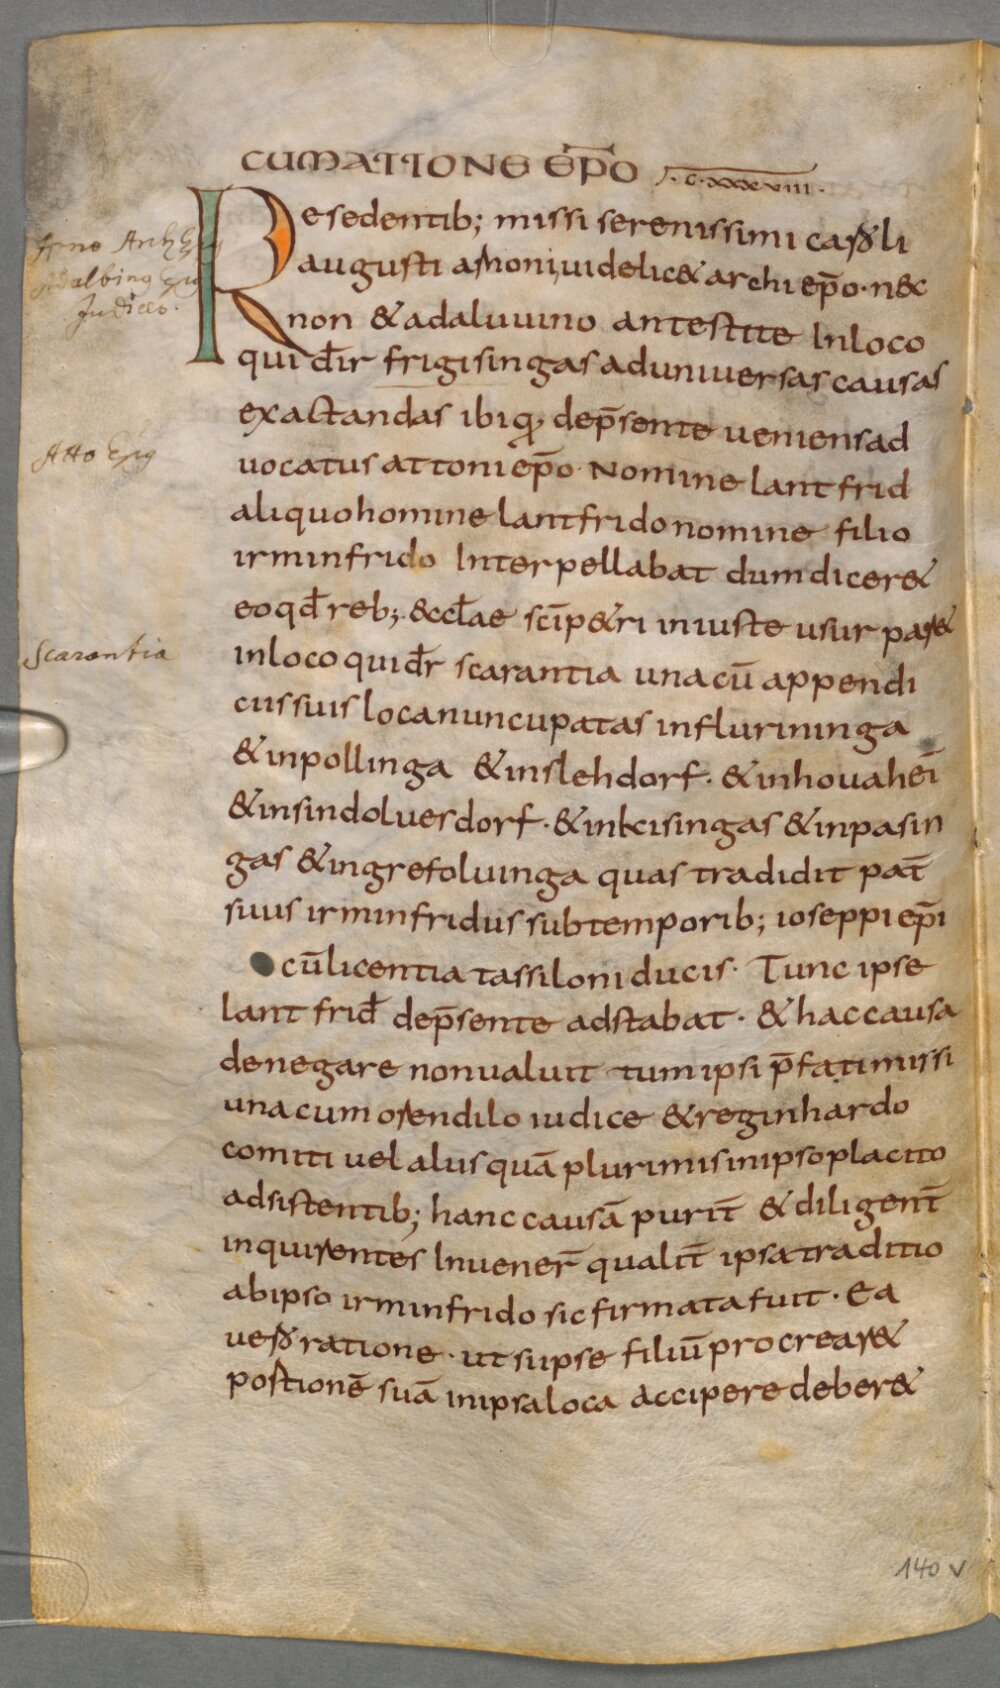 CUMATIONE EP̄O ·C·XXXVIII·
Resedentib; missi serenissimi caroli
augusti arnoni, uidelic& archiep̄o· nec
non & adaluuino antestite In loco
qui dr̄ frigisingas ad uniuersas causas
exactandas ibiq, dep̄sente ueniens ad
uocatus attoni ep̄o· Nomine lantfrid
aliquo homine lantfrido nomine filio
irminfrido Interpellabat dum dicer&
eo qd̄ reb; eccłae scī p&ri iniuste usurpar&
in loco qui dr̄ scarantia una cū appendi
ciis suis loca nuncupatas in flurininga
& in pollinga & in slehdorf· & in houaheī
& in sindoluesdorf· & in kisingas & in pasin
gas & in grefoluinga quas tradidit pat̄
suus irminfridus sub temporib; ioseppi ep̄i
cū licentia tassiloni ducis· Tunc ipse
lantfrid̄ dep̄sente adstabat· & hac causa
denegare non ualuit tum ipsi p̄fati missi
una cum orendilo iudice & reginhardo
comiti uel aliis quā plurimis in ipso placito
adsistentib; hanc causā purit̄ & diligent̄
inquirentes Inuener̄ qualit̄ ipsa traditio
ab ipso irminfrido sic firmata fuit· Ea
uero ratione· ut si ipse filiū procrear&
postionē suā in ipsa loca accipere deber&
Arno Arch Epg
Adalbing Epg
Judices·
Atto Epg
Scarantia
140 v